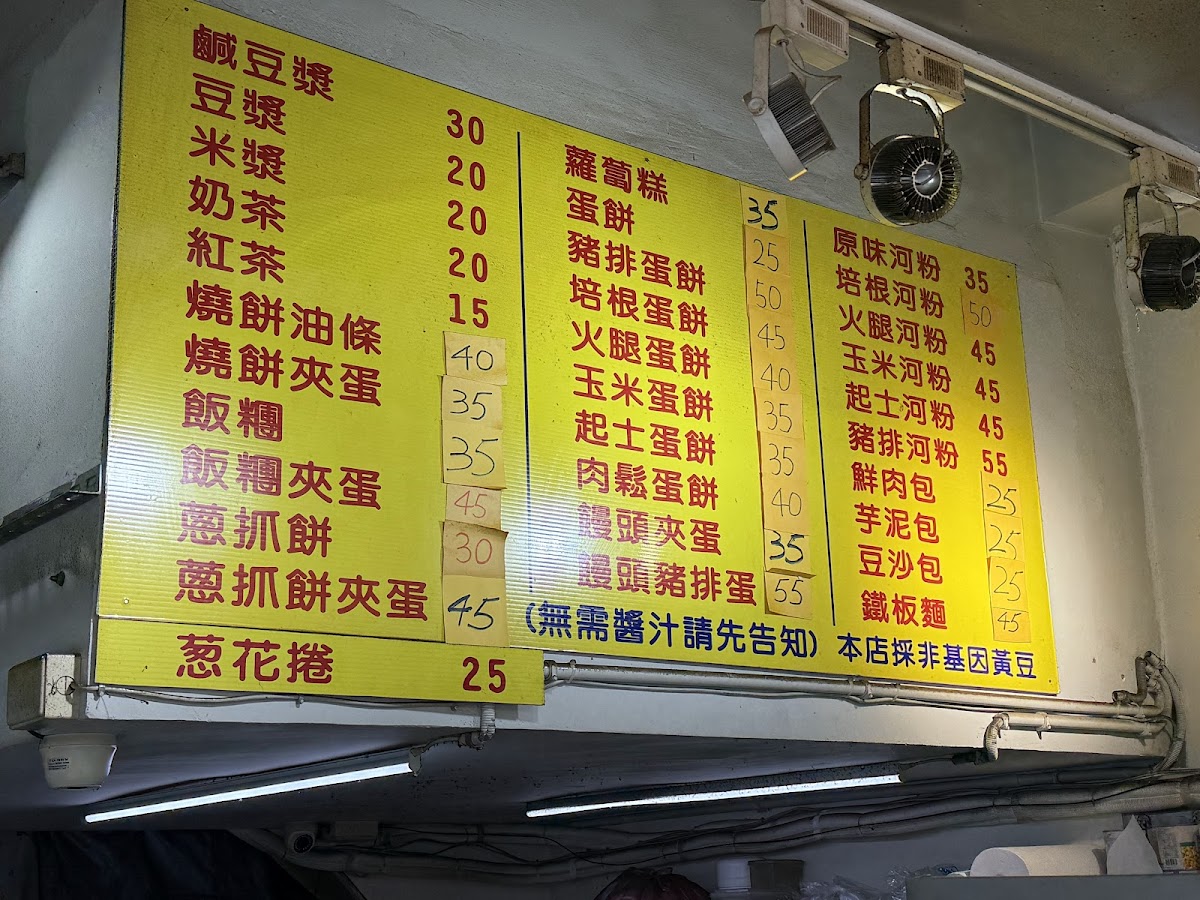 鹹豆漿 30
豆漿 20
米漿 20
奶茶 20
紅茶 15
燒餅油條 40
燒餅夾蛋 35
飯糰 35
飯糰夾蛋 45
蔥抓餅 30
蔥抓餅夾蛋 45
葱花捲 25
蘿蔔糕 35
蛋餅 25
豬排蛋餅 50
培根蛋餅 45
火腿蛋餅 40
玉米蛋餅 35
起士蛋餅 35
肉鬆蛋餅 40
饅頭夾蛋 35
饅頭豬排蛋 55
(無需醬汁請先告知)
原味河粉 35
培根河粉 50
火腿河粉 45
玉米河粉 45
起士河粉 45
豬排河粉 55
鮮肉包 25
芋泥包 25
豆沙包 25
鐵板麵 45
本店採非基因黃豆